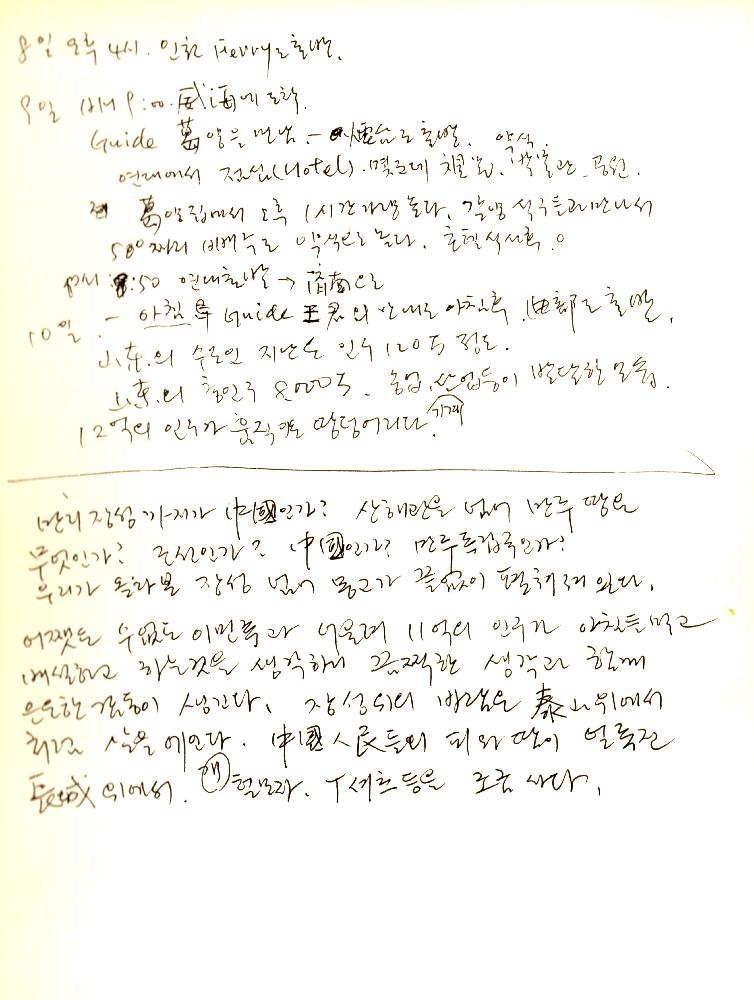 8일 오후 4시. 인천 Ferry로 출발.
9일 아침 9:00. 威海에 도착.
Guide 葛양을 만남 – 煙台로 출발. 약식.
연대에서 점심(Hotel). 몇군데 박물관. 공원.
葛양집에서 오후 1시간가량 놀다. 갈양 식구들과 만나서
50°짜리 빼갈로 약식으로 놀다. 호텔식사후.
pm 8:50 연대출발 → 濟南으로
10일. – 아침 후 Guide 王君의 안내로 아침후 曲部로 출발.
山東의 수도인 지난은 인구 120万 정도.
山東의 총인구 8000万. 농업, 산업등이 발달한 모습.
12억의 인구가 움직이는 땅덩어리다. 기계
만리장성 까지가 中國인가? 산해관을 넘어 만주 땅은
무엇인가? 조선인가? 中國인가? 만주독립국인가?
우리가 올라본 장성 넘어 몽고가 끝없이 펼쳐져 있다.
어쨋든 수없는 이민족과 어울려 11억의 인구가 아침을 먹고
배설하고 하는것을 생각하니 끔찍한 생각과 함께
은은한 감동이 생긴다. 장성위의 바람은 泰山위에서
처럼 살을 에인다. 中國人民들의 피와 땀이 얼룩진
長城 위에서. 개털모자. T셔츠등을 조금 사다.